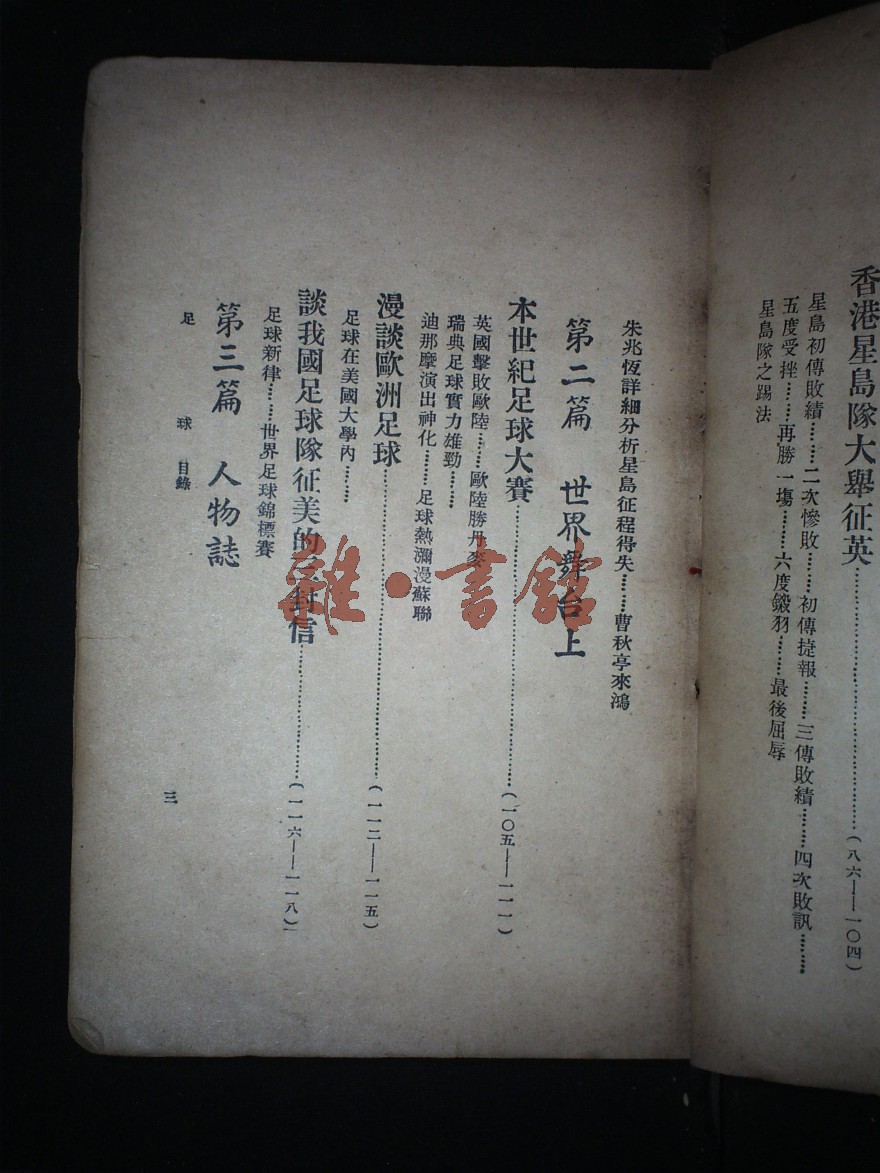 香港星島隊大舉征英…………(八六——一〇四)
星島初傳敗績……二次慘敗……初傳捷報……三傳敗績……四次敗訊……
五度受挫……再勝一塲……六度鎩羽……最後屈辱
星島隊之踢法
朱兆恆詳細分析星島征程得失……曹秋亭來鴻
第二篇 世界舞台上
本世紀足球大賽…………(一〇五——一一一)
英國擊敗歐陸……歐陸勝丹麥
瑞典足球實力雄勁……
迪那摩演出神化……足球熱瀰漫蘇聯
漫談歐洲足球…………(一一二——一一五)
足球在美國大學內……
談我國足球隊征美的三封信…………(一一六——一一八)
足球新律……世界足球錦標賽
第三篇 人物誌
足球 目錄
三
雜·書館